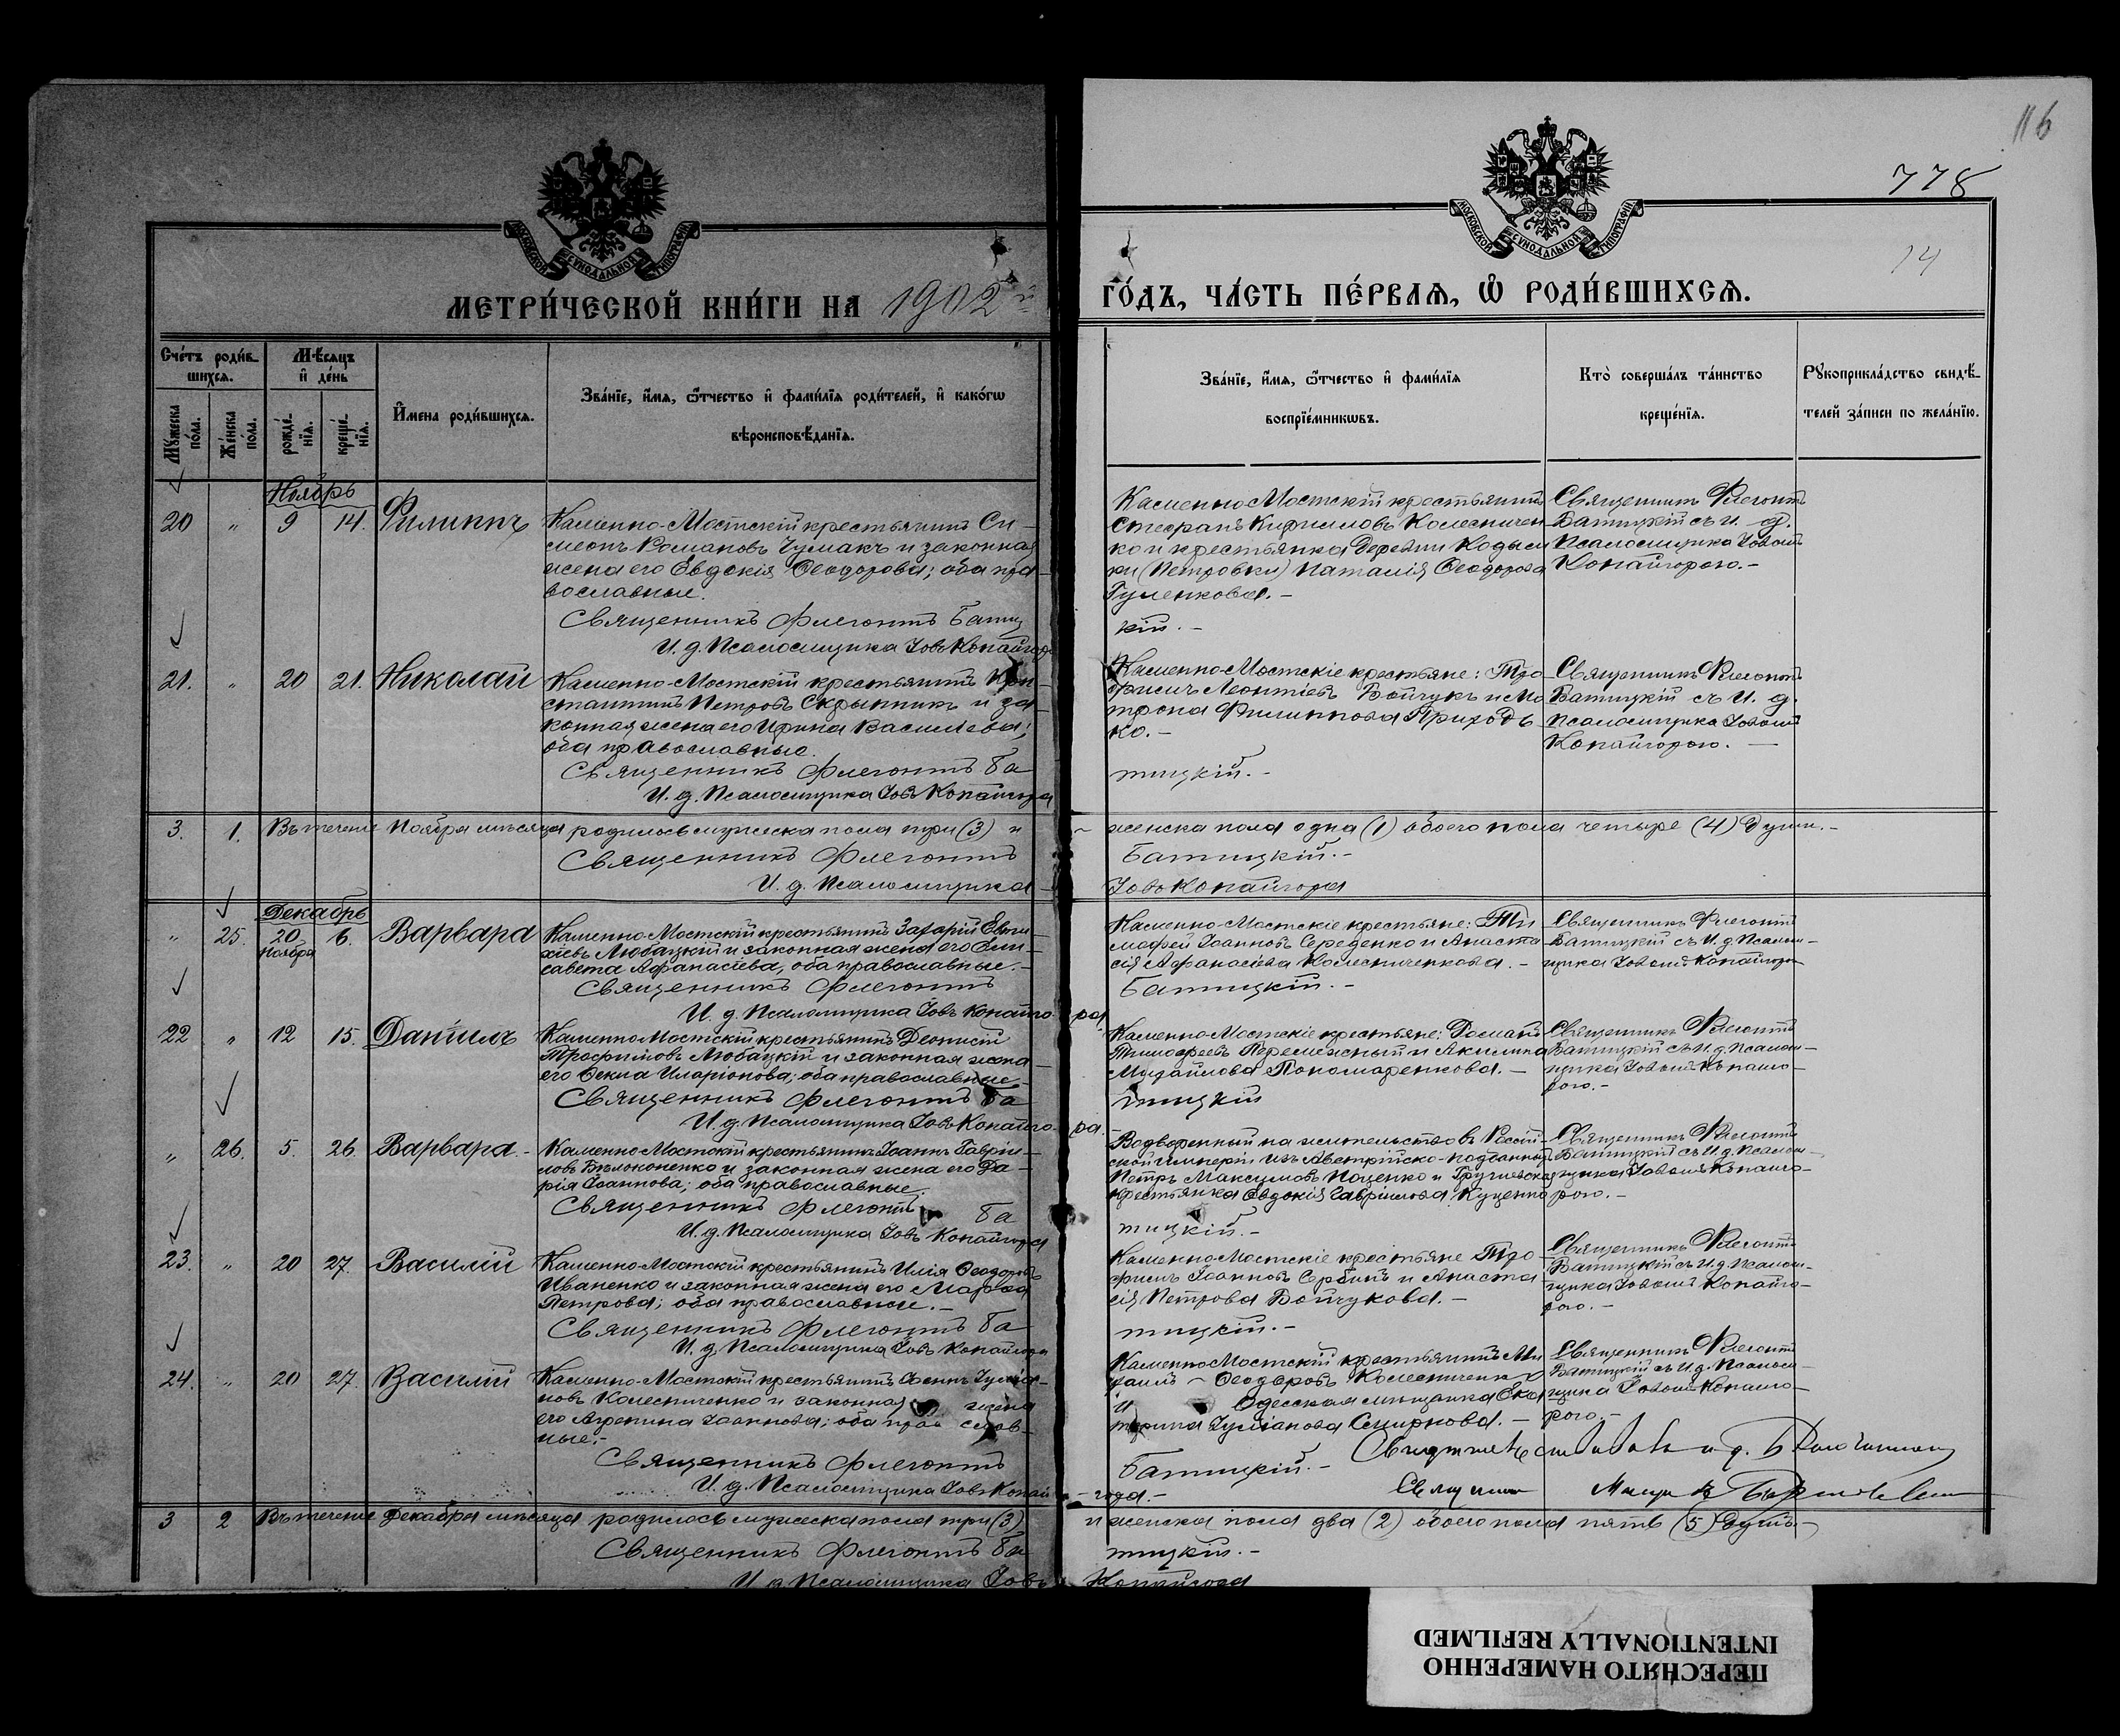 116
778
14
МОСКОВСКОЙ СѴНОДАЛЬНОЙ ТИПОГРАФІИ
МОСКОВСКОЙ СѴНОДАЛЬНОЙ ТИПОГРАФІИ
МЕТРИ́ЧЕСКОЙ КНИ́ГИ НА 1902 й
ГО́ДЪ, ЧА́СТЬ ПЕ́РВАѦ, Ѡ РОДИ́ВШИХСѦ.
Сче́тъ роди́в-
шихсѧ.
Мѣ́сѧцъ
и҆ де́нь
Мꙋ́жеска по́ла.
Же́нска по́ла.
рожде́-нїѧ.
креще́-нїѧ.
И҆́мена роди́вшихсѧ.
Зва́нїе, и҆́мѧ, ѻ҆́тчество и҆ фами́лїѧ роди́телей, и҆ како́гѡ
вѣроисповѣ́данїѧ.
Зва́нїе, и҆́мѧ, ѻ҆́тчество и҆ фами́лїѧ
воспрїе́мникѡвъ.
Кто̀ соверша́лъ та́инство
креще́нїѧ.
Рꙋкоприкла́дство свидѣ́-
телей за́писи по жела́нїю.
Ноябрь
20 " 9 14. Филиппъ
Каменно-Мостскій крестьянинъ Си-
меонъ Романовъ Чумакъ и законная
жена его Евдокія Ѳеодорова; оба пра-
вославные.
Священникъ Флегонтъ Батиц
И. д. Псаломщика Іовъ Копайгора
Каменно Мостскій крестьянинъ
Стефанъ Кириловъ Колесничен-
ко и крестьянка деревни Кодым
ки (Петровки) Наталія Ѳеодорова
Гуленкова.-
кій.-
Священникъ Флегонтъ
Батицкій съ и. д.
Псаломщика Іовомъ
Копайгорою.-
21. " 20 21. Николай
Каменно-Мостскій крестьянинъ Кон-
стантинъ Петровъ Скрыпникъ и за-
конная жена его Ирина Васильева;
оба православные.
Священникъ Флегонтъ Ба
И. д. Псаломщика Іовъ Копайгора
Каменно-Мостскіе крестьяне: Тро-
фимъ Леонтіевъ Бойчукъ и Ма
трона Филиппова Приходь-
ко.-
тицкій.-
Священникъ Флегонтъ
Батицкій съ И. д.
Псаломщика Іовомъ
Копайгорою. -
3. 1. Въ теченіе Ноября мѣсяца родилось мужеска пола три (3) и
женска пола одна (1) обоего пола четыре (4) души.-
Священникъ Флегонтъ
Батицкій.-
И. д. Псаломщика
Іовъ Копайгора
Декабрь
" 25. 20 Ноября 6. Варвара
Каменно-Мостскій крестьянинъ Захарій Евти-
хіевъ Любацкій и законная жена его Ели-
савета Афанасіева, оба православные.-
Священникъ Флегонтъ
И. д. Псаломщика Іовъ Копайго-
Каменно-Мостскіе крестьяне: Ти
мофей Іоанновъ Середенко и Анаста
сія Афанасіева Колесниченкова.-
Батицкій.-
ра
Священникъ Флегонтъ
Батицкій съ И. д. Псалом-
щика Іовомъ Копайгорою
22 " 12 15. Даніилъ
Каменно Мостскій крестьянинъ Діонисій
Трофимовъ Любацкій и законная жена
его Ѳекла Иларіонова; оба православные.-
Священникъ Флегонтъ Ба
И. д. Псаломщика Іовъ Копайго-
Каменно-Мостскіе крестьяне: Романъ
Тимофеевъ Перемежный и Акилина
Михайлова Пономаренкова.-
тицкій
ра.
Священникъ Флегонтъ
Батицкій съ И. д. Псалом-
щика Іовомъ Копайго-
рою.-
" 26. 5. 26. Варвара.-
Каменно-Мостскій крестьянинъ Іоаннъ Гавріи-
ловъ Бѣлоконенко и законная жена его Да-
рія Іоаннова; оба православные.
Священникъ Флегонтъ Ба
И. д. Псаломщика Іовъ Копайгора
Водворенный на жительство въ Россій-
ской Имперіи изъ Австрійско-подданныхъ
Петръ Максимовъ Поценко и
крестьянка Евдокія Гавріилова Куценко
тицкій.-
Священникъ Флегонтъ
Батицкій съ И. д. Псалом-
щика Іовомъ Копайго-
рою.-
23. " 20 27. Василій
Каменно-Мостскій крестьянинъ Илія Ѳеодоровъ
Иваненко и законная жена его Марфа
Петрова; оба православные.-
Священникъ Флегонтъ Ба
И. д. Псаломщика Іовъ Копайгора
Каменно Мостскіе крестьяне Тро-
фимъ Іоанновъ Сербинъ и Анаста-
сія Петрова Бойчукова.-
тицкій.-
Священникъ Флегонтъ
Батицкій съ И. д. Псалом-
щика Іовомъ Копайго-
рою.-
24. " 20 27. Василій
Каменно-Мостскій крестьянинъ Іуліа-
новъ Колесниченко и законная жена
его Агрепина Іоаннова; оба прав слав-
ные.-
Священникъ Флегонтъ
И. д. Псаломщика Іовъ Копай
Каменно Мостскій крестьянинъ Ми
хаилъ Ѳеодоровъ Колесниченко
и Одесская мѣщанка Ека
терина Іуліанова Смирнова.-
Батицкій.-
гора.-
Священникъ Флегонтъ
Батицкій съ И. д. Псалом-
щика Іовомъ Копайго-
рою.-
Священник
3 2 Въ теченіе Декабря мѣсяца родилось мужеска пола три (3)
и женска пола два (2) обоего пола пять (5) душъ.-
Священникъ Флегонтъ Ба
тицкій.-
И. д. Псаломщика Іовъ
Копайгора
ПЕРЕСНЯТО НАМЕРЕННО
INTENTIONALLY REFILMED